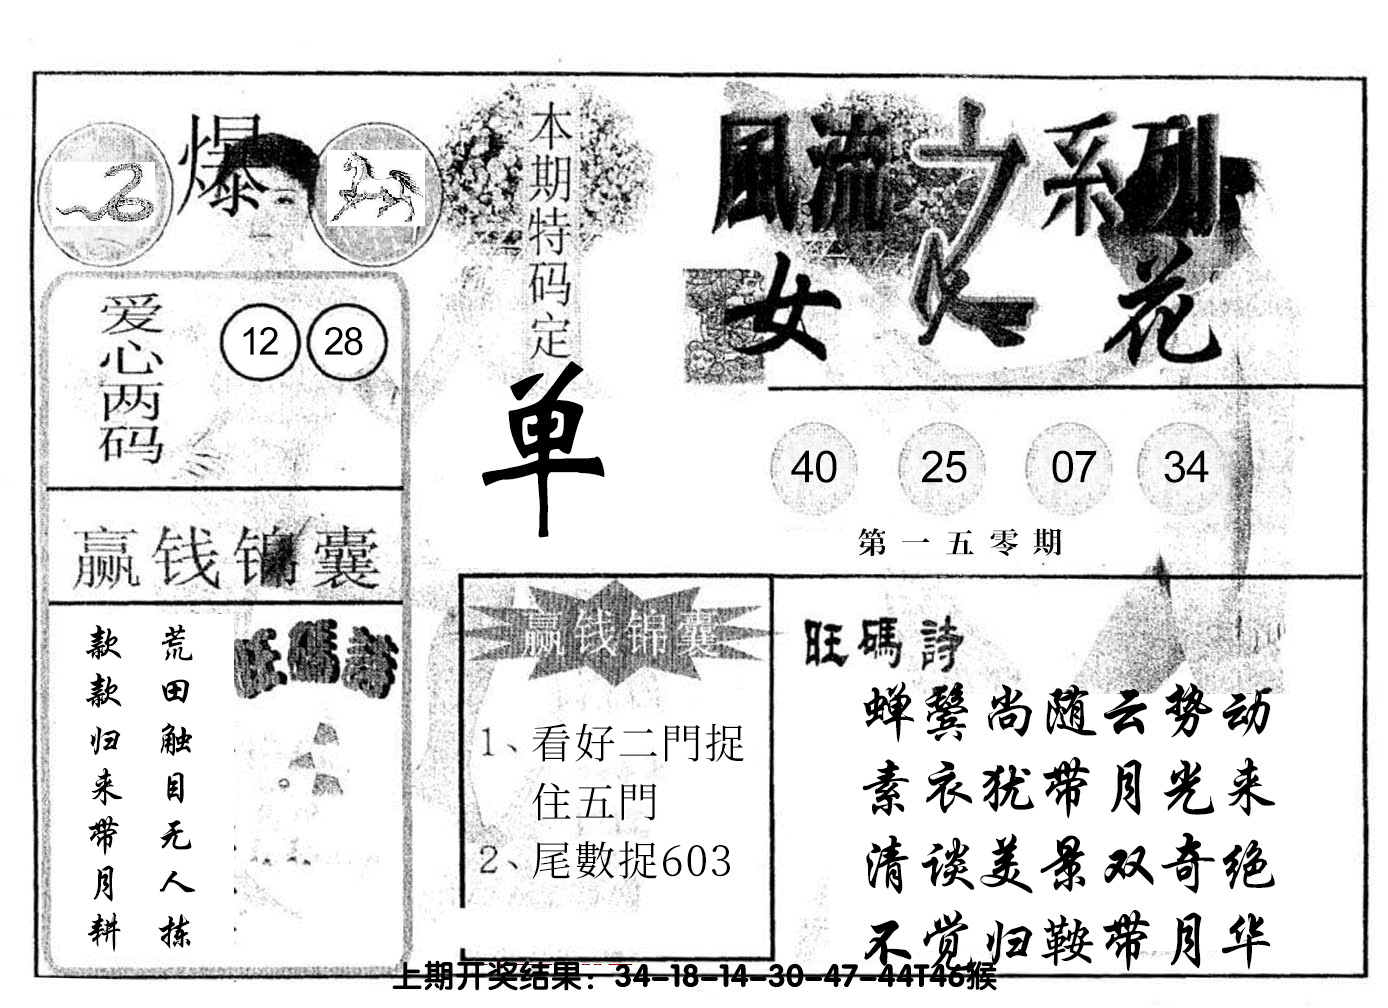 爆
本期特码定
单
風流之系列
女人花
爱心两码
12 28
40 25 07 34
第一五零期
赢钱锦囊
荒田触目无人拣
款款归来带月耕
旺碼詩
赢钱锦囊
1、看好二門捉
住五門
2、尾數捉603
旺碼詩
蝉鬓尚随云势动
素衣犹带月光来
清谈美景双奇绝
不觉归鞍带月华
上期开奖结果：34-18-14-30-47-44T46猴